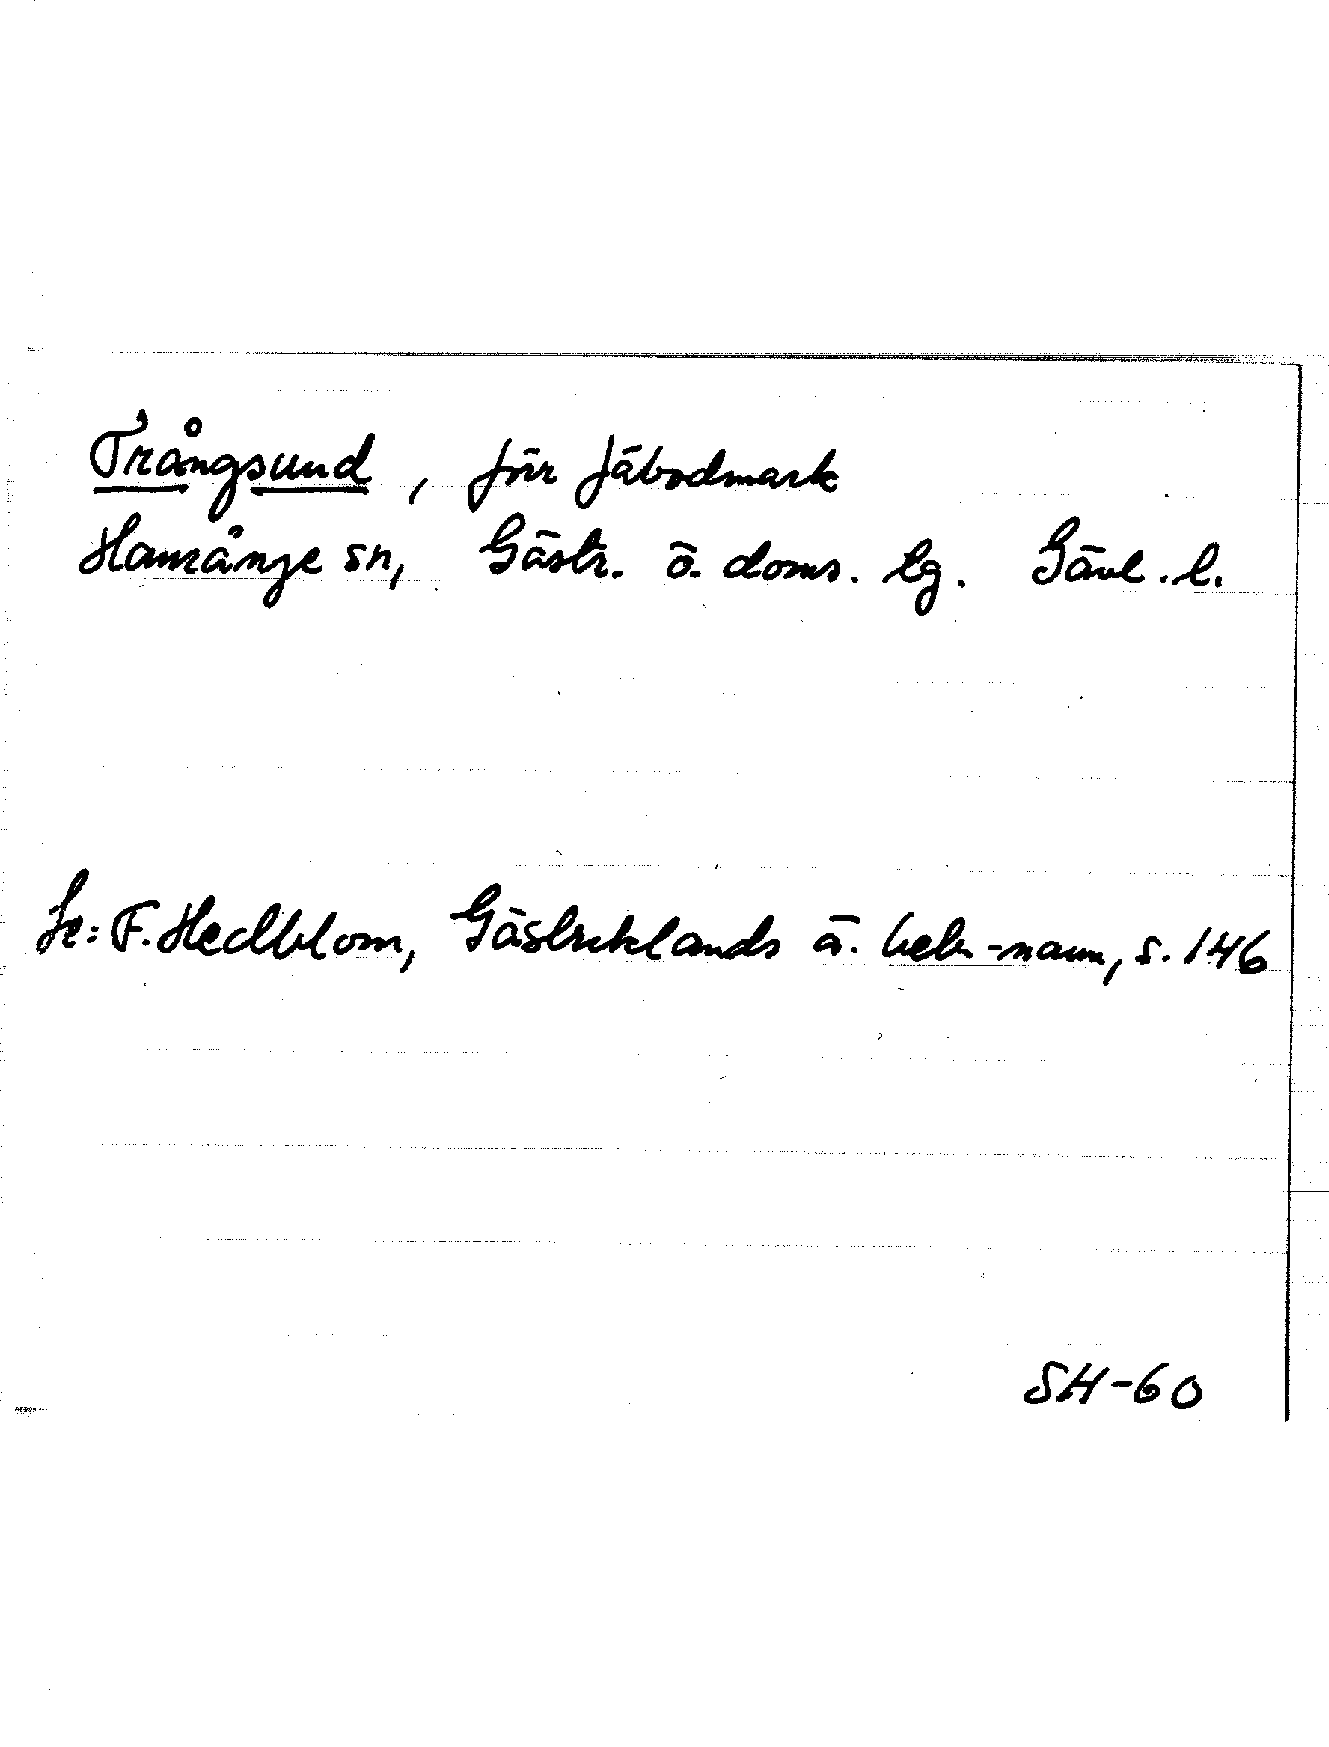 Trångsund, förr fäbodmark
Hamrånge sn, Gästr. ö. doms. lg. Gävl. l.
Se: F. Hedblom, Gästriklands ä. beb-namn, s. 146
SH-60